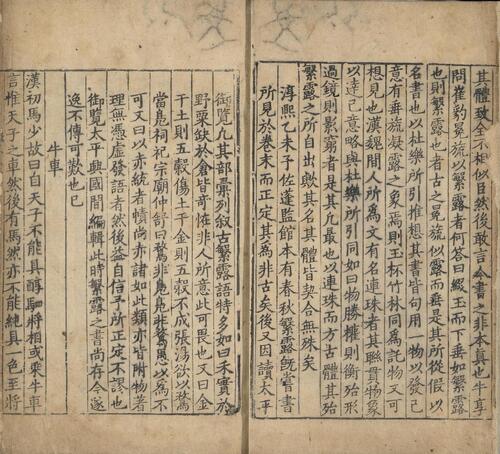 其體致全不相似臣然後敢言今書之非本真也牛享
問崔豹冕旒以繁露者何答曰綴玉而下垂如繁露
也則繁露也者古之冕旒似露而垂是其所從假以
名書也以杜樂所引推想其書皆句用一物以發己
意有垂旒凝露之象焉則玉杯竹林同爲託物又可
想見也漢魏間人所爲文有名連珠者其聯貫物象
以達己意略與杜樂所引同如曰物勝權則衡殆形
過鏡則影窮者是其凡最也以連珠而方古體其殆
繁露之所自出歟其名其體皆契合無殊矣
淳熙乙未予佐蓬監館本有春秋繁露旣嘗書
所見於卷末而正定其爲非古矣後又因讀太平
御覽凡其部彙列敘古繁露語特多如曰禾實於
野粟缺於倉皆奇怪非人所意此可畏也又曰金
干土則五穀傷土干金則五穀不成張湯欲以鶩
當鳧祠祀宗廟仲舒曰鶩非鳧鳧非鶩愚以爲不
可又曰以赤統者幘尚赤諸如此類亦皆附物著
理無憑虛發語者然後益自信予所正定不謬也
御覽太平興國間編輯此時繁露之書尚存今遂
逸不傳可歎也已
牛車
漢初馬少故曰自天子不能具醇駟將相或乗牛車
言惟天子之車然後有馬然亦不能純具一色至將